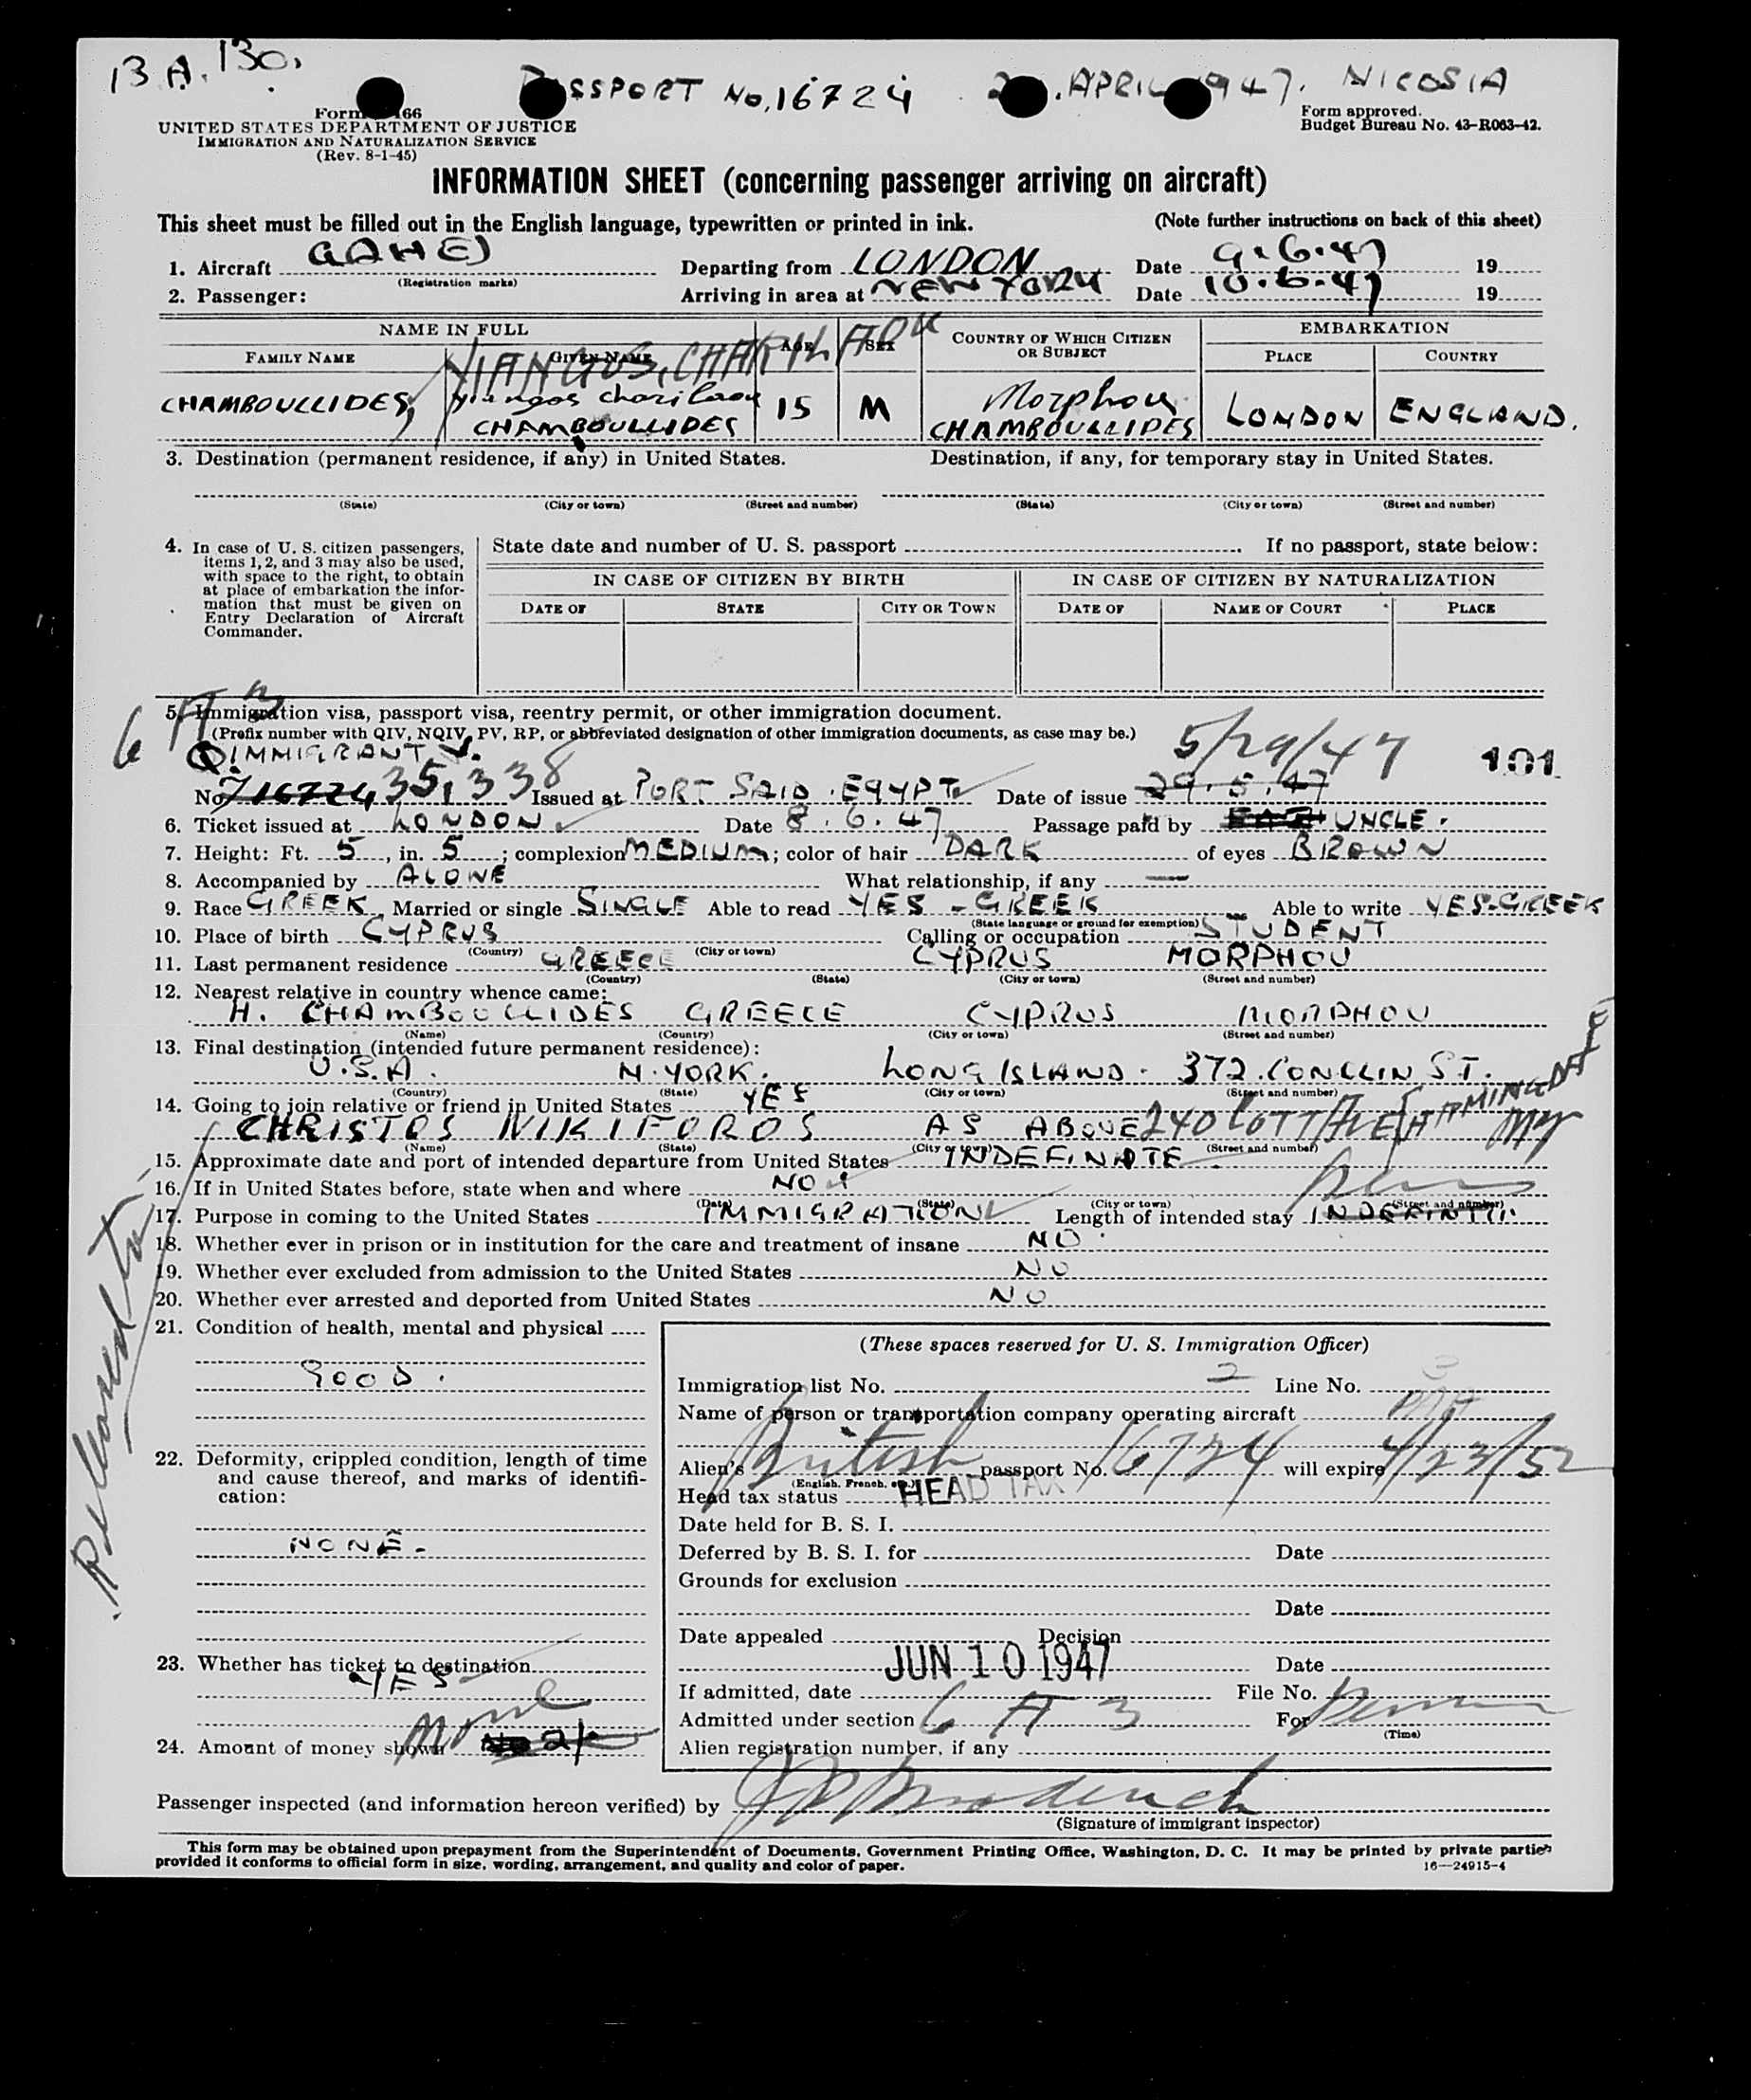 B.A. 130.
PASSPORT No. 16724 2 . APRIL 1947. NICOSIA
Form 66
UNITED STATES DEPARTMENT OF JUSTICE
IMMIGRATION AND NATURALIZATION SERVICE
(Rev. 8-1-45)
Form approved.
Budget Bureau No. 43-R063-42.
INFORMATION SHEET (concerning passenger arriving on aircraft)
This sheet must be filled out in the English language, typewritten or printed in ink. (Note further instructions on back of this sheet)
1. Aircraft GAHEJ Departing from LONDON Date 9.6.47 19
(Registration marks)
2. Passenger: Arriving in area at NEW YORK Date 10.6.47 19
NAME IN FULL AGE SEX COUNTRY OF WHICH CITIZEN OR SUBJECT EMBARKATION
FAMILY NAME GIVEN NAME PLACE COUNTRY
YIANGOS, CHARILAOU
CHAMBOULLIDES, yiangos charilaou 15 M Morphou LONDON ENGLAND.
CHAMBOULLIDES CHAMBOULLIDES
3. Destination (permanent residence, if any) in United States. Destination, if any, for temporary stay in United States.
(State) (City or town) (Street and number) (State) (City or town) (Street and number)
4. In case of U. S. citizen passengers, items 1, 2, and 3 may also be used, with space to the right, to obtain at place of embarkation the information that must be given on Entry Declaration of Aircraft Commander.
State date and number of U. S. passport . If no passport, state below:
IN CASE OF CITIZEN BY BIRTH IN CASE OF CITIZEN BY NATURALIZATION
DATE OF STATE CITY OR TOWN DATE OF NAME OF COURT PLACE
6 A 3
5. Immigration visa, passport visa, reentry permit, or other immigration document.
(Prefix number with QIV, NQIV, PV, RP, or abbreviated designation of other immigration documents, as case may be.)
Q. IMMIGRANT V. 5/29/47 101
No. 716724 35,338 Issued at PORT SAID. EGYPT Date of issue 29.5.47
6. Ticket issued at LONDON Date 8.6.47 Passage paid by UNCLE.
7. Height: Ft. 5, in. 5; complexion MEDIUM; color of hair DARK of eyes BROWN
8. Accompanied by ALONE What relationship, if any —
9. Race GREEK Married or single SINGLE Able to read YES - GREEK Able to write YES-GREEK
(State language or ground for exemption)
10. Place of birth CYPRUS Calling or occupation STUDENT
(Country) (City or town)
11. Last permanent residence GREECE CYPRUS MORPHOU
(Country) (State) (City or town) (Street and number)
12. Nearest relative in country whence came:
H. CHAMBOULLIDES GREECE CYPRUS MORPHOU
(Name) (Country) (City or town) (Street and number)
13. Final destination (intended future permanent residence):
U.S.A. N.YORK. LONG ISLAND. 372. CONCLIN ST.
(Country) (State) (City or town) (Street and number)
14. Going to join relative or friend in United States YES
CHRISTOS NIKIFOROS AS ABOVE 240 COTT AVE FARMINGDALE NY
(Name) (State) (City or town) (Street and number)
15. Approximate date and port of intended departure from United States INDEFINATE
16. If in United States before, state when and where NO
(Date) (State) (City or town) (Street and number)
17. Purpose in coming to the United States IMMIGRATION Length of intended stay INDEFINTIT.
18. Whether ever in prison or in institution for the care and treatment of insane NO
19. Whether ever excluded from admission to the United States NO
20. Whether ever arrested and deported from United States NO
21. Condition of health, mental and physical
GOOD.
22. Deformity, crippled condition, length of time and cause thereof, and marks of identification:
NONE.
23. Whether has ticket to destination
YES
24. Amount of money shown None
(These spaces reserved for U. S. Immigration Officer)
Immigration list No. 2 Line No. 3
Name of person or transportation company operating aircraft PAA
Alien's British passport No. 16724 will expire 4/23/52
(English, French, etc.)
Head tax status HEAD TAX
Date held for B. S. I.
Deferred by B. S. I. for Date
Grounds for exclusion
Date
Date appealed Decision
JUN 10 1947 Date
If admitted, date File No.
Admitted under section 6 A 3 For Perm
(Time)
Alien registration number, if any
Passenger inspected (and information hereon verified) by
(Signature of immigrant inspector)
This form may be obtained upon prepayment from the Superintendent of Documents, Government Printing Office, Washington, D. C. It may be printed by private parties
provided it conforms to official form in size, wording, arrangement, and quality and color of paper. 16—24915-4